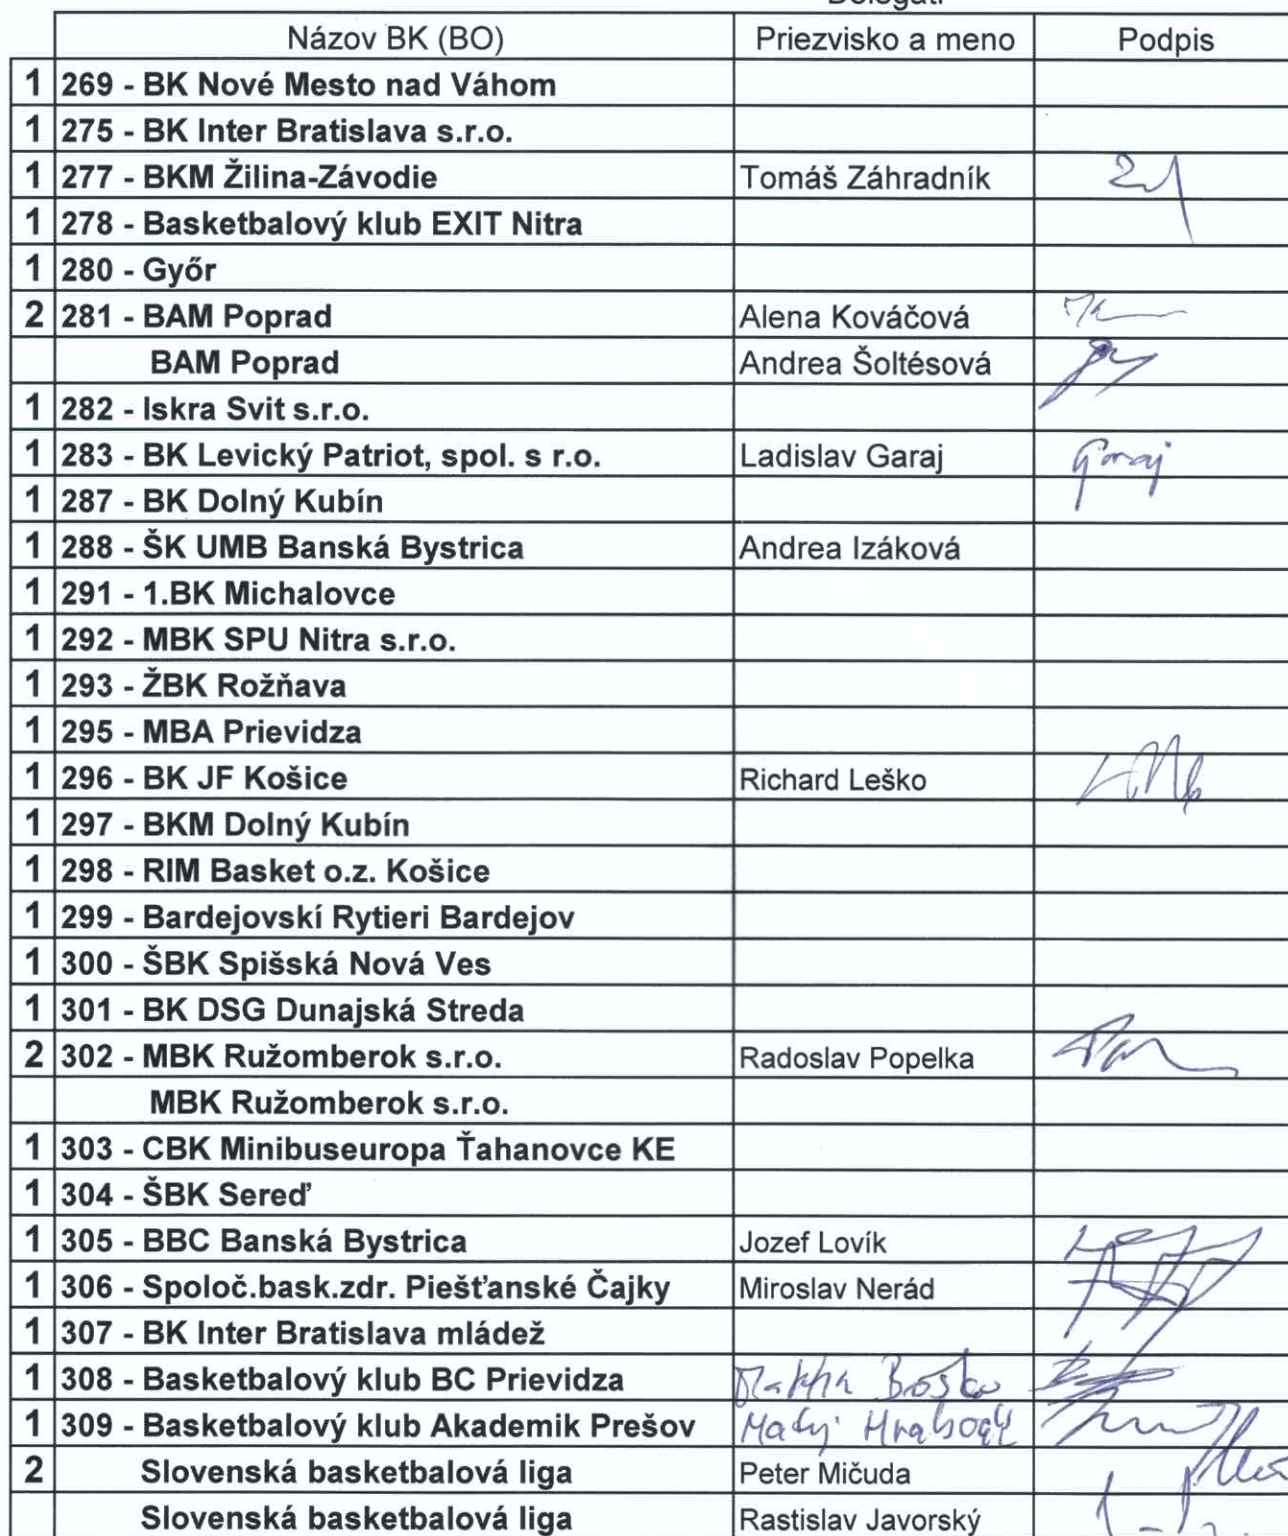 Delegáti
Názov BK (BO) Priezvisko a meno Podpis
1 269 - BK Nové Mesto nad Váhom
1 275 - BK Inter Bratislava s.r.o.
1 277 - BKM Žilina-Závodie Tomáš Záhradník
1 278 - Basketbalový klub EXIT Nitra
1 280 - Győr
2 281 - BAM Poprad Alena Kováčová
BAM Poprad Andrea Šoltésová
1 282 - Iskra Svit s.r.o.
1 283 - BK Levický Patriot, spol. s r.o. Ladislav Garaj Garaj
1 287 - BK Dolný Kubín
1 288 - ŠK UMB Banská Bystrica Andrea Izáková
1 291 - 1.BK Michalovce
1 292 - MBK SPU Nitra s.r.o.
1 293 - ŽBK Rožňava
1 295 - MBA Prievidza
1 296 - BK JF Košice Richard Leško
1 297 - BKM Dolný Kubín
1 298 - RIM Basket o.z. Košice
1 299 - Bardejovskí Rytieri Bardejov
1 300 - ŠBK Spišská Nová Ves
1 301 - BK DSG Dunajská Streda
2 302 - MBK Ružomberok s.r.o. Radoslav Popelka
MBK Ružomberok s.r.o.
1 303 - CBK Minibuseuropa Ťahanovce KE
1 304 - ŠBK Sereď
1 305 - BBC Banská Bystrica Jozef Lovík
1 306 - Spoloč.bask.zdr. Piešťanské Čajky Miroslav Nerád
1 307 - BK Inter Bratislava mládež
1 308 - Basketbalový klub BC Prievidza
1 309 - Basketbalový klub Akademik Prešov
2 Slovenská basketbalová liga Peter Mičuda
Slovenská basketbalová liga Rastislav Javorský